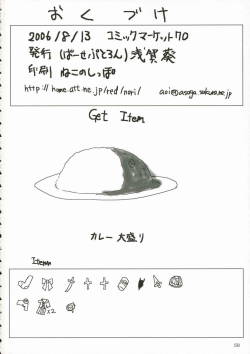 おくづけ
2006/8/13 コミックマーケット70
発行 (ぱーせぷとろん)浅賀葵
印刷 ねこのしっぽ
http://home.att.ne.jp/red/nori/ aoi@asaga.sakura.ne.jp
Get Item
カレー 大盛り
Items
x2